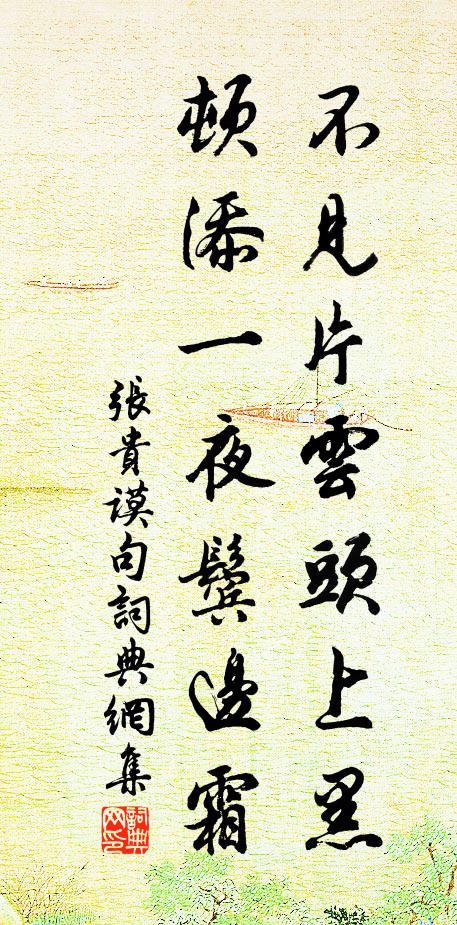 不見片雲頭上黑
頓添一夜鬢邊霜
張貴謨句詞典網集
詞典網印